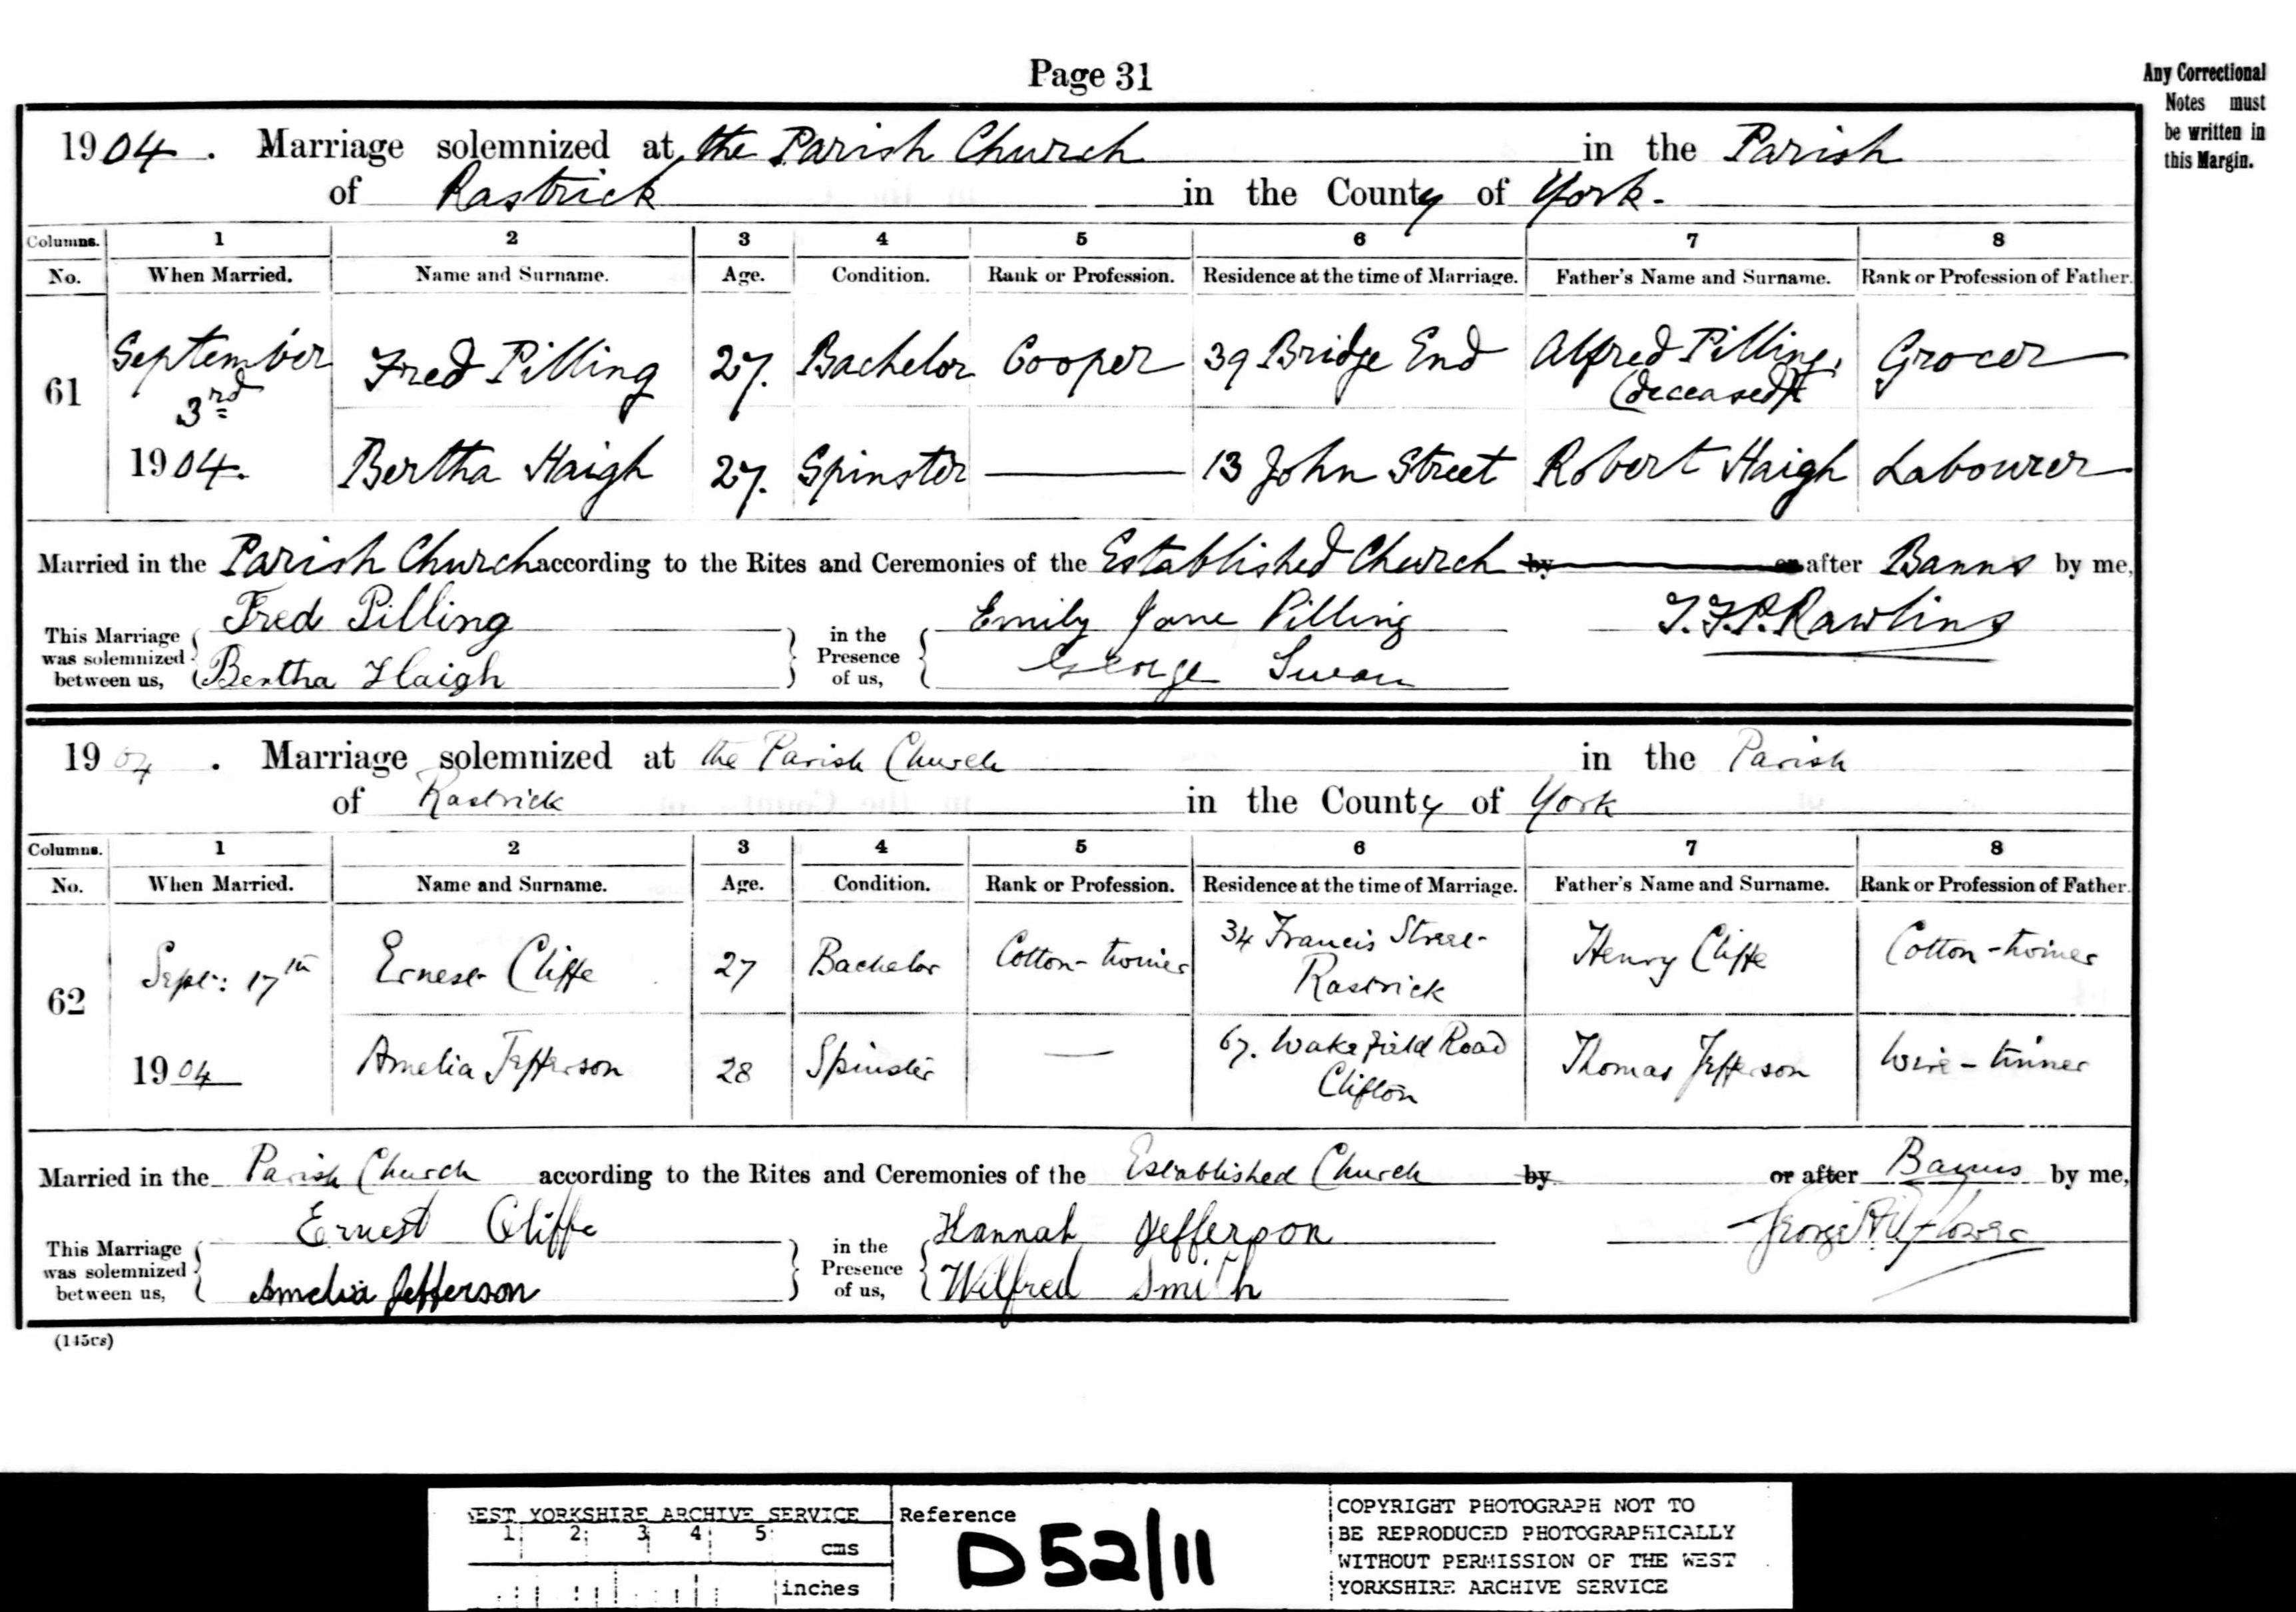 Page 31
Any Correctional
Notes must
be written in
this Margin.
1904. Marriage solemnized at the Parish Church in the Parish
of Rastrick in the County of York.
Columns. 1 2 3 4 5 6 7 8
No. When Married. Name and Surname. Age. Condition. Rank or Profession. Residence at the time of Marriage. Father's Name and Surname. Rank or Profession of Father.
61 September 3rd 1904. Fred Pilling 27. Bachelor Cooper 39 Bridge End Alfred Pilling, (deceased) Grocer
Bertha Haigh 27. Spinster — 13 John Street Robert Haigh Labourer
Married in the Parish Church according to the Rites and Ceremonies of the Established Church by or after Banns by me,
This Marriage was solemnized between us, Fred Pilling Bertha Haigh in the Presence of us, Emily Jane Pilling George Swan T.F.P. Rawlins
1904. Marriage solemnized at the Parish Church in the Parish
of Rastrick in the County of York
Columns. 1 2 3 4 5 6 7 8
No. When Married. Name and Surname. Age. Condition. Rank or Profession. Residence at the time of Marriage. Father's Name and Surname. Rank or Profession of Father.
62 Sept: 17th 1904 Ernest Cliffe 27 Bachelor Cotton-twiner 34 Francis Street Rastrick Henry Cliffe Cotton-twiner
Amelia Jefferson 28 Spinster — 67. Wakefield Road Clifton Thomas Jefferson Wire-tinner
Married in the Parish Church according to the Rites and Ceremonies of the Established Church by or after Banns by me,
This Marriage was solemnized between us, Ernest Cliffe Amelia Jefferson in the Presence of us, Hannah Jefferson Wilfred Smith George
(145cs)
WEST YORKSHIRE ARCHIVE SERVICE
1 2 3 4 5
cms
inches
Reference
D52/11
COPYRIGHT PHOTOGRAPH NOT TO
BE REPRODUCED PHOTOGRAPHICALLY
WITHOUT PERMISSION OF THE WEST
YORKSHIRE ARCHIVE SERVICE